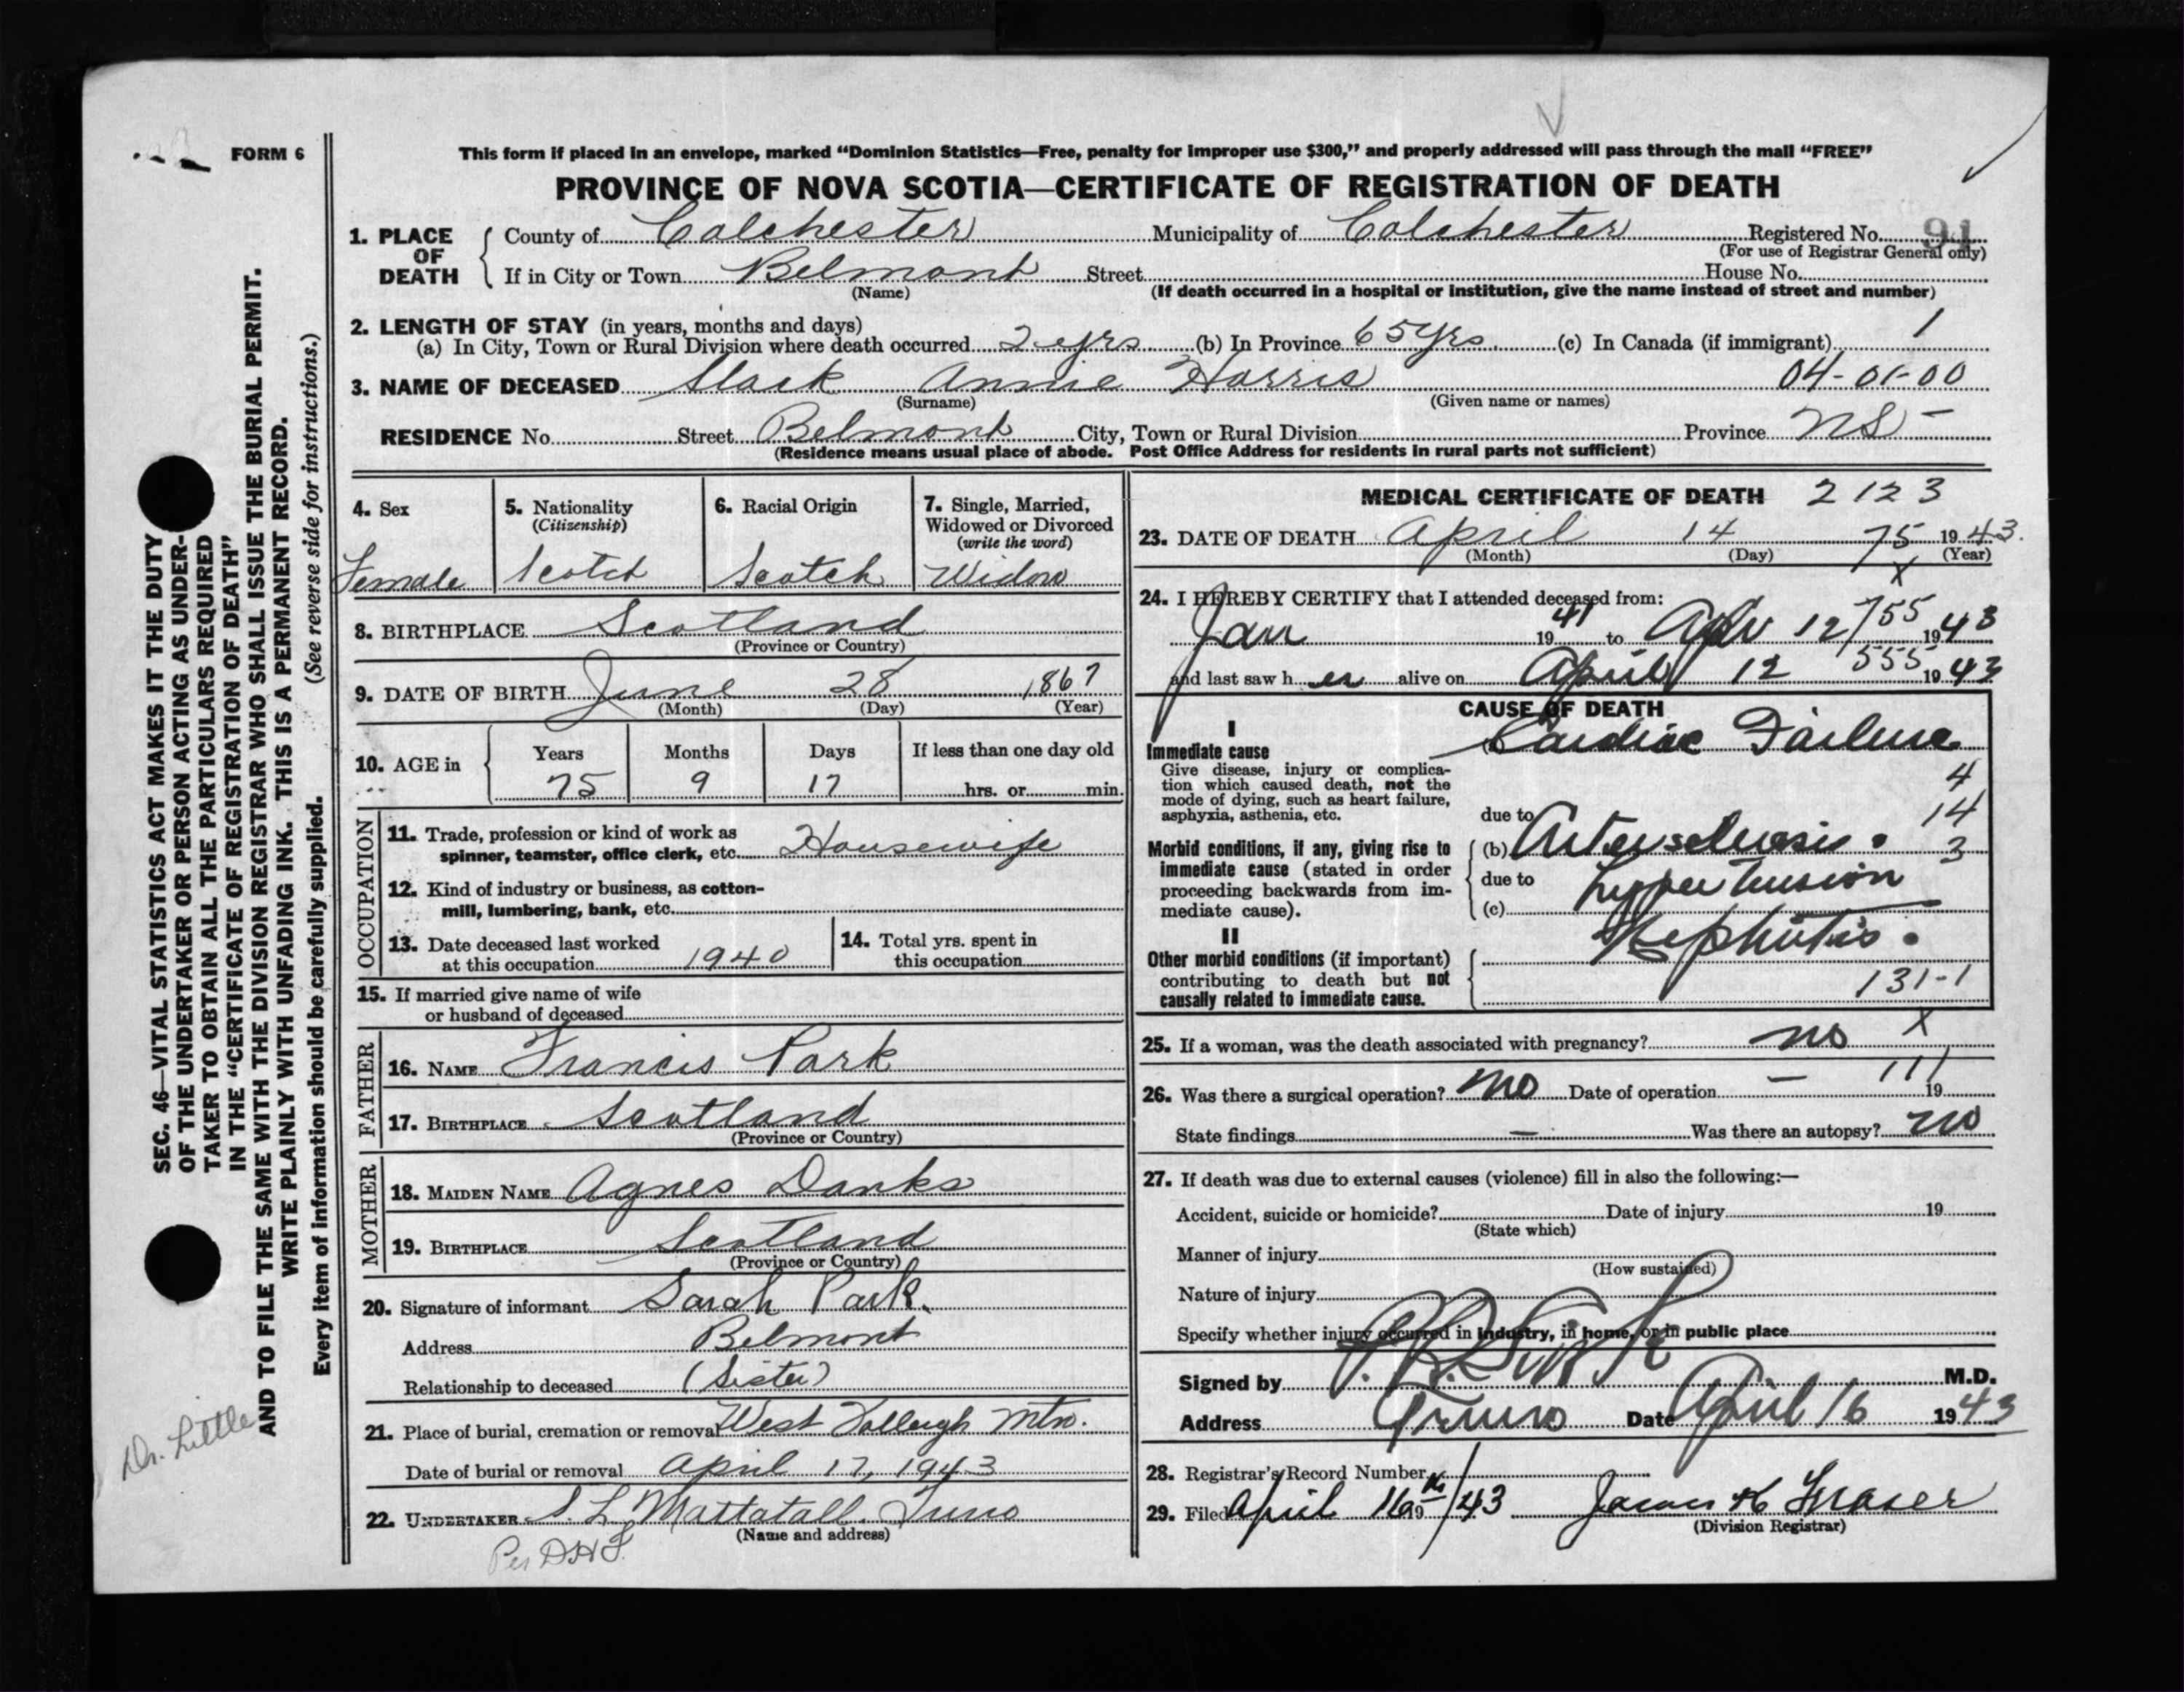 FORM 6
This form if placed in an envelope, marked “Dominion Statistics—Free, penalty for improper use $300,” and properly addressed will pass through the mail “FREE”
PROVINCE OF NOVA SCOTIA—CERTIFICATE OF REGISTRATION OF DEATH
1. PLACE OF DEATH { County of Colchester Municipality of Colchester Registered No. 91
(For use of Registrar General only)
If in City or Town Belmont Street House No.
(Name) (If death occurred in a hospital or institution, give the name instead of street and number)
2. LENGTH OF STAY (in years, months and days) 1
(a) In City, Town or Rural Division where death occurred 2 yrs (b) In Province 65 yrs (c) In Canada (if immigrant)
3. NAME OF DECEASED Slack Annie Harris 04-01-00
(Surname) (Given name or names)
RESIDENCE No. Street Belmont City, Town or Rural Division Province NS-
(Residence means usual place of abode. Post Office Address for residents in rural parts not sufficient)
4. Sex
Female
5. Nationality
(Citizenship)
Scotch
6. Racial Origin
Scotch
7. Single, Married,
Widowed or Divorced
(write the word)
Widow
8. BIRTHPLACE Scotland
(Province or Country)
9. DATE OF BIRTH June 28 1867
(Month) (Day) (Year)
10. AGE in { Years Months Days If less than one day old
75 9 17 hrs. or min.
OCCUPATION
11. Trade, profession or kind of work as
spinner, teamster, office clerk, etc. Housewife
12. Kind of industry or business, as cotton-
mill, lumbering, bank, etc.
13. Date deceased last worked
at this occupation 1940
14. Total yrs. spent in
this occupation
15. If married give name of wife
or husband of deceased
FATHER
16. NAME Francis Park
17. BIRTHPLACE Scotland
(Province or Country)
MOTHER
18. MAIDEN NAME Agnes Danks
19. BIRTHPLACE Scotland
(Province or Country)
20. Signature of informant Sarah Park.
Address Belmont
Relationship to deceased (Sister)
21. Place of burial, cremation or removal West Mtn.
Date of burial or removal April 17, 1943
22. UNDERTAKER S. L. Mattatall. Truro
(Name and address)
Per DHF.
MEDICAL CERTIFICATE OF DEATH 2123
23. DATE OF DEATH April 14 75 1943.
(Month) (Day) (Year)
X
24. I HEREBY CERTIFY that I attended deceased from:
Jan 1941 to Apr 12 755 1943
and last saw her alive on April 12 555 1943
CAUSE OF DEATH
I
Immediate cause Cardiac Failure
Give disease, injury or complica-
tion which caused death, not the
mode of dying, such as heart failure,
asphyxia, asthenia, etc.
4
14
3
due to
Morbid conditions, if any, giving rise to
immediate cause (stated in order
proceeding backwards from im-
mediate cause).
(b) Arteriosclerosis.
due to hypertension
(c)
Nephritis.
II
Other morbid conditions (if important)
contributing to death but not
causally related to immediate cause.
131-1
X
25. If a woman, was the death associated with pregnancy? no
111
26. Was there a surgical operation? no Date of operation — 19
State findings — Was there an autopsy? no
27. If death was due to external causes (violence) fill in also the following:—
Accident, suicide or homicide? Date of injury 19
(State which)
Manner of injury
(How sustained)
Nature of injury
Specify whether injury occurred in industry, in home, or in public place
Signed by M.D.
Address Truro Date April 16 1943
28. Registrar's Record Number
29. Filed April 16th 19/43 James K Fraser
(Division Registrar)
SEC. 46—VITAL STATISTICS ACT MAKES IT THE DUTY
OF THE UNDERTAKER OR PERSON ACTING AS UNDER-
TAKER TO OBTAIN ALL THE PARTICULARS REQUIRED
IN THE “CERTIFICATE OF REGISTRATION OF DEATH”
AND TO FILE THE SAME WITH THE DIVISION REGISTRAR WHO SHALL ISSUE THE BURIAL PERMIT.
WRITE PLAINLY WITH UNFADING INK. THIS IS A PERMANENT RECORD.
Every item of information should be carefully supplied. (See reverse side for instructions.)
Dr. Little